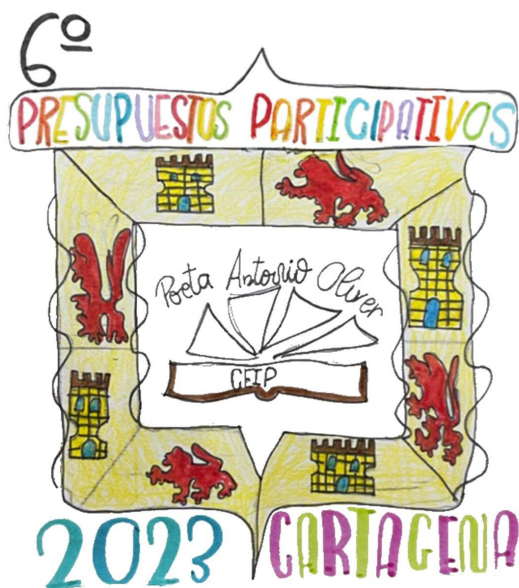 6º
PRESUPUESTOS PARTICIPATIVOS
Poeta Antonio Oliver
CEIP
2023 CARTAGENA